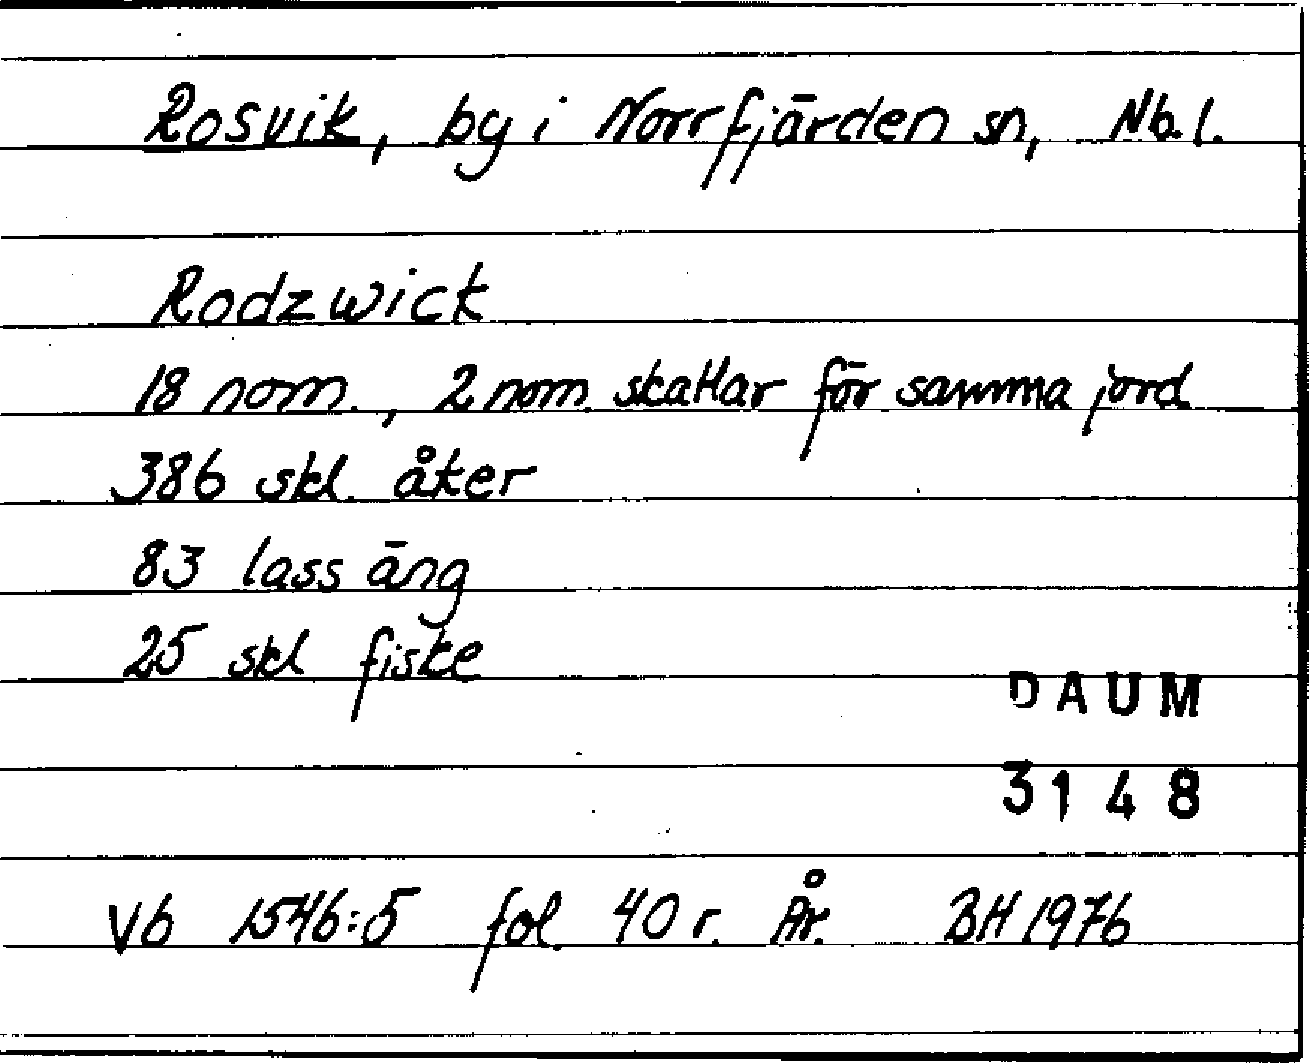 Rosvik, by i Norrfjärden sn, Nb. l.
Rodzwick
18 nom., 2 nom. skattar för samma jord
386 skl. åker
83 lass äng
25 skl fiske
DAUM
3148
Vb 1546:5 fol. 40 r. År. BH 1976